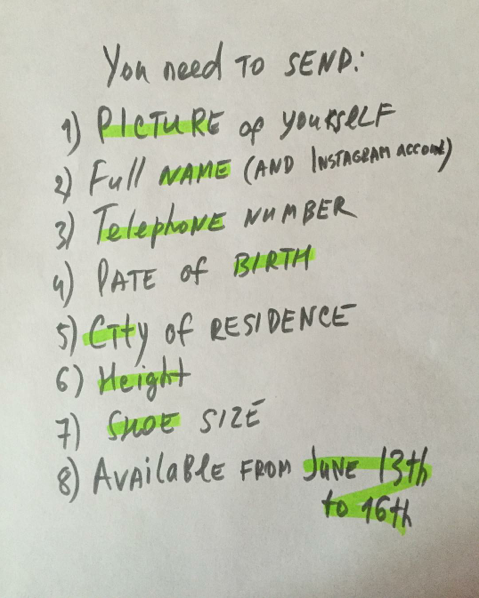 You need TO SEND:
1) PICTURE of yourSELF
2) Full NAME (AND INSTAGRAM ACCOUNT)
3) TelephoNE NUMBER
4) DATE of BIRTH
5) City of RESIDENCE
6) Height
7) SHOE SIZE
8) AVAilABLE FROM JUNE 13th
to 16th